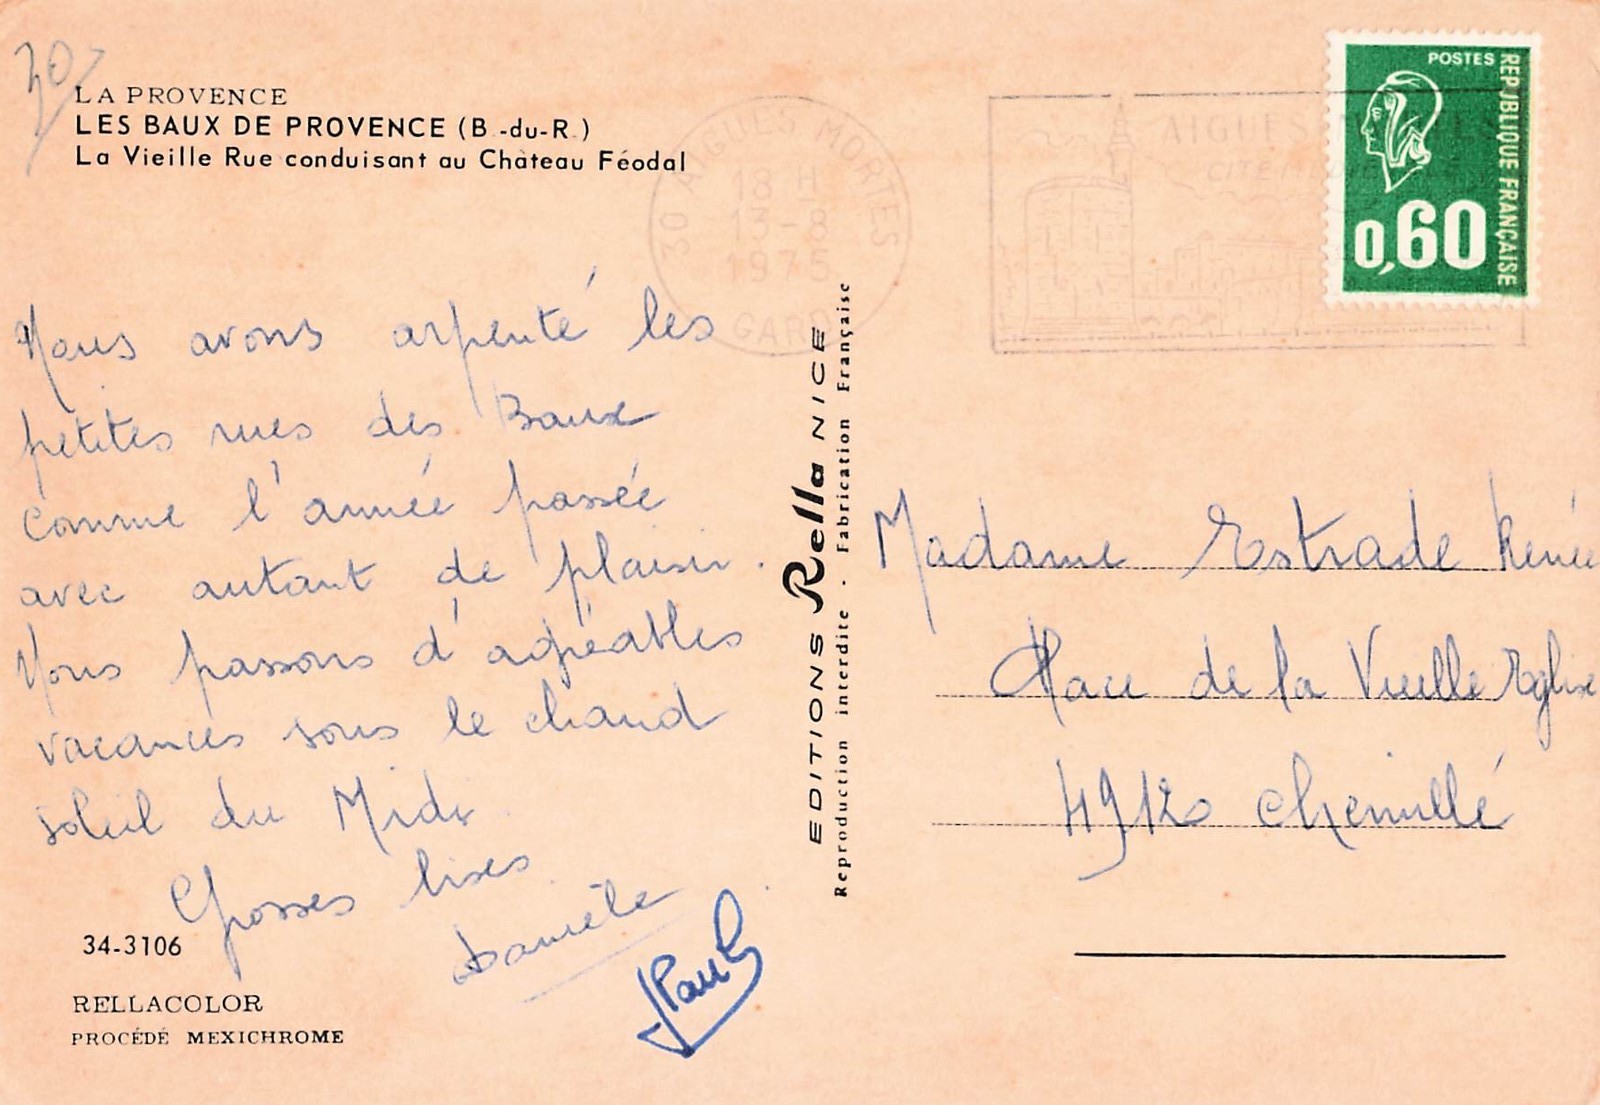 30
LA PROVENCE
LES BAUX DE PROVENCE (B.-du-R.)
La Vieille Rue conduisant au Château Féodal
Nous avons arpenté les
petites rues des Baux
comme l'année passée
avec autant de plaisir.
Nous passons d'agréables
vacances sous le chaud
soleil du Midi.
Grosses bises
Danièle
Paul
34-3106
RELLACOLOR
PROCÉDÉ MEXICHROME
EDITIONS Rella NICE
Reproduction interdite - Fabrication Française
30 AIGUES MORTES
18 H
13-8
1975
GARD
AIGUES-MORTES
POSTES
REPUBLIQUE FRANÇAISE
0,60
Madame Estrade Renée
Place de la Vieille Eglise
49120 Chemillé